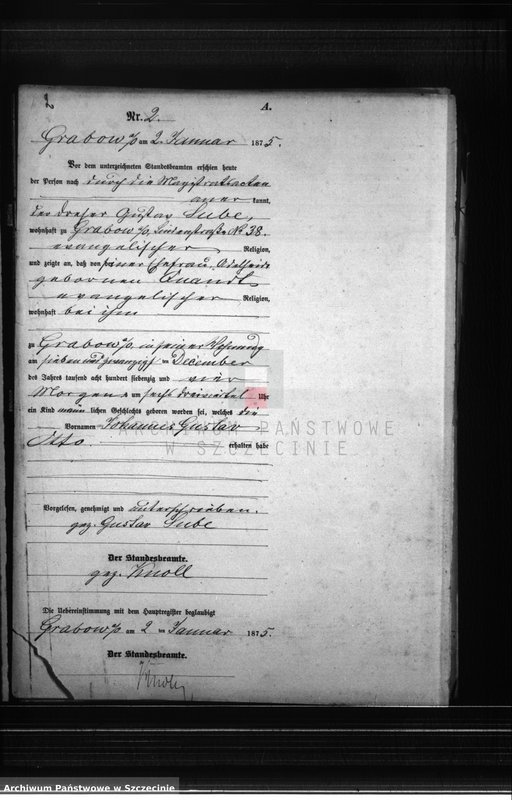 2
A.
Nr. 2.
Grabow a/O am 2. Januar 1875.
Vor dem unterzeichneten Standesbeamten erschien heute
der Person nach durch die Magistratsacten
aner kannt,
der Dreher Gustav Lube,
wohnhaft zu Grabow a/O, Lindenstraße No 38.
evangelischer Religion,
und zeigte an, daß von seiner Ehefrau Adelheid
gebornen Quandt
evangelischer Religion,
wohnhaft bei ihm
zu Grabow a/O, in seiner Wohnung
am sieben und zwanzigsten December
des Jahres tausend acht hundert siebenzig und vier
Morgens um sechs dreiviertel Uhr
ein Kind männlichen Geschlechts geboren worden sei, welches die
Vornamen Johannes Gustav
Otto erhalten habe
ARCHIWUM PAŃSTWOWE
W SZCZECINIE
Vorgelesen, genehmigt und unterschrieben.
gez. Gustav Lube
Der Standesbeamte.
gez. Knoll
Die Uebereinstimmung mit dem Hauptregister beglaubigt
Grabow a/O am 2 ten Januar 1875.
Der Standesbeamte.
Knoll
Archiwum Państwowe w Szczecinie